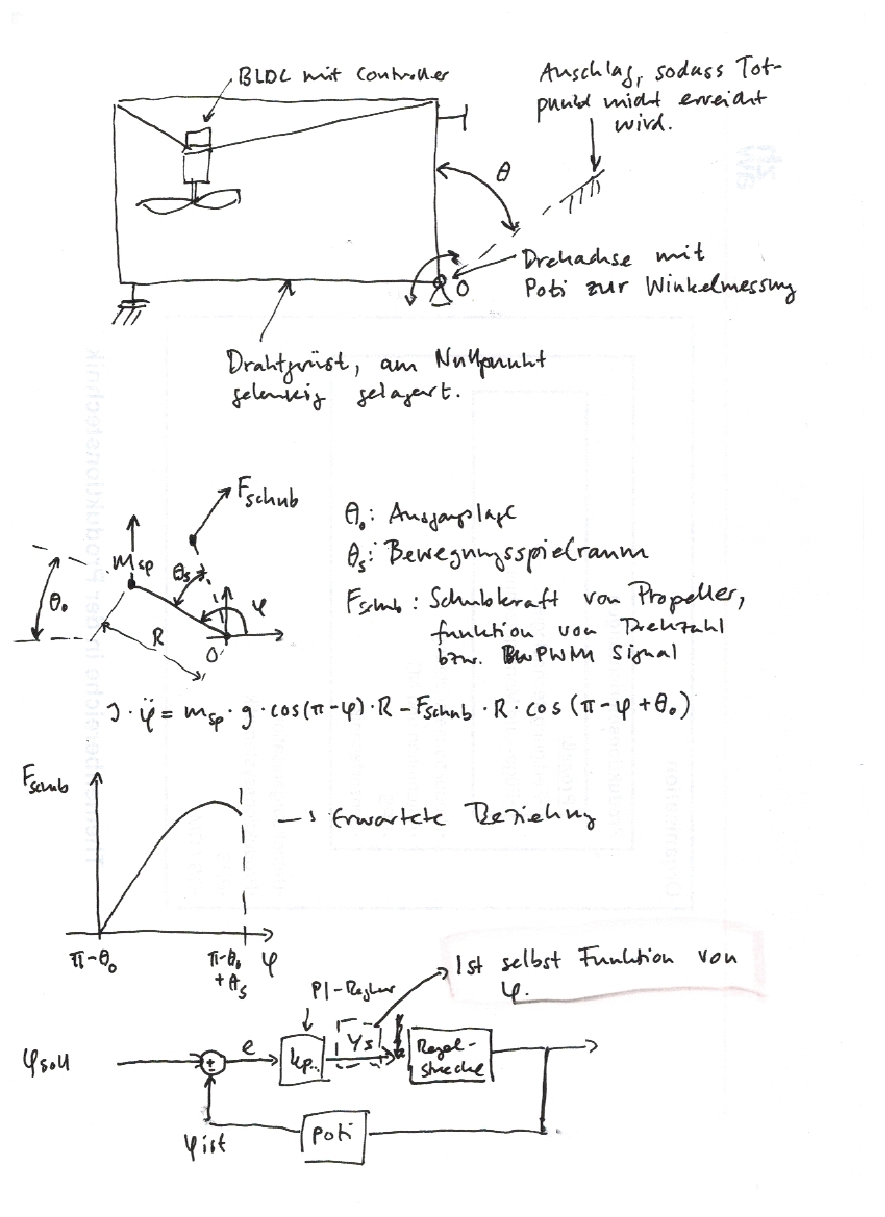 BLDC mit Controller
Anschlag, sodass Tot-
punkt nicht erreicht
wird.
θ
Drehachse mit
Poti zur Winkelmessung
O
Drahtgerüst, am Nullpunkt
gelenkig gelagert.
F_Schub
m_sp
θ_s
θ_0
φ
R
O
θ_0: Ausgangslage
θ_s: Bewegungsspielraum
F_Schub: Schubkraft von Propeller,
funktion von Drehzahl
bzw. PWM Signal
J · φ̈ = m_sp · g · cos(π-φ) · R - F_Schub · R · cos(π-φ+θ_0)
F_Schub
→ Erwartete Beziehung
π-θ_0
π-θ_0
+θ_s
φ
Ist selbst Funktion von
φ.
PI-Regler
φ_soll
±
e
kp..
Ys
Regel-
strecke
φ_ist
Poti